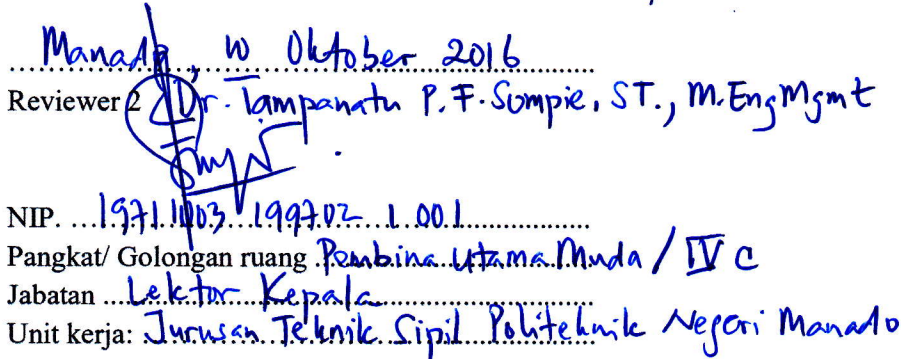 Manado, 10 Oktober 2016
Reviewer 2 Dr. Tampanatu P. F. Sompie, ST., M.EngMgmt
NIP. 19711003 199702 1 001
Pangkat/ Golongan ruang Pembina Utama Muda / IV c
Jabatan Lektor Kepala
Unit kerja: Jurusan Teknik Sipil Politeknik Negeri Manado